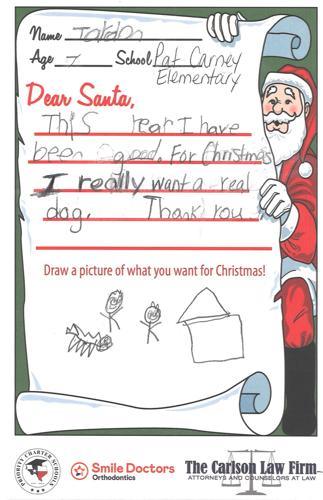 Name Jordan
Age 7 School Pat Carney
Elementary
Dear Santa,
This Year I have
been good. For Christmas
I really want a real
dog. Thank you
Draw a picture of what you want for Christmas!
PRIORITY CHARTER SCHOOLS
Smile Doctors
Orthodontics
The Carlson Law Firm
ATTORNEYS AND COUNSELORS AT LAW